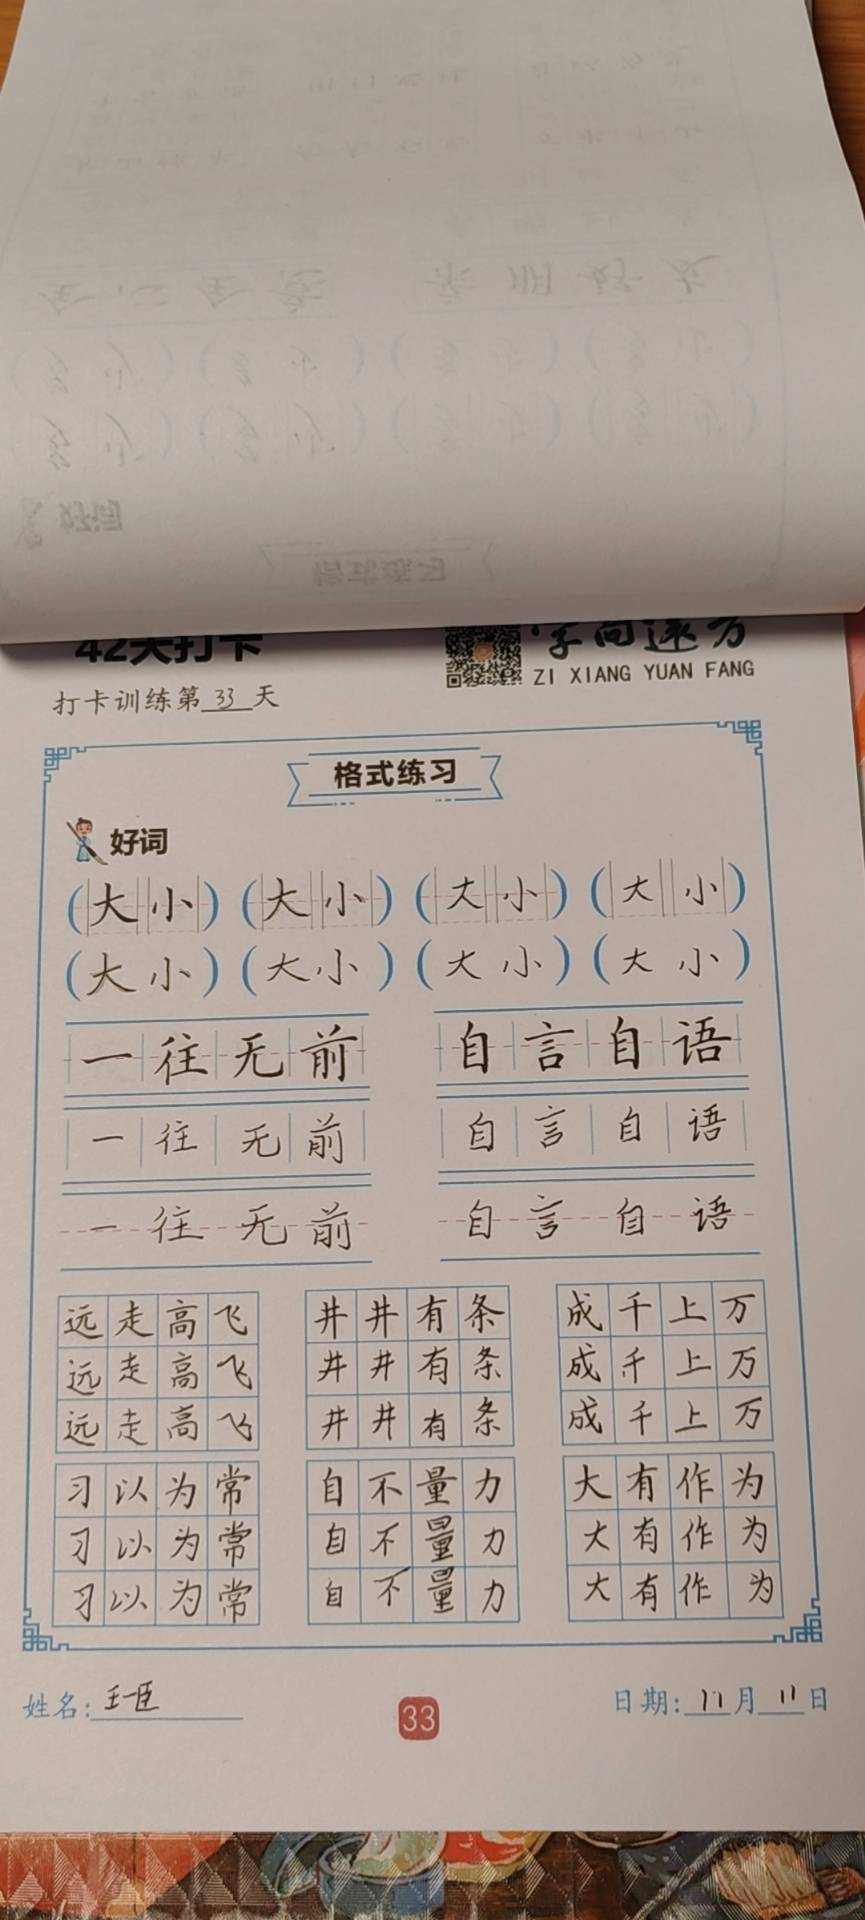 42天打卡
字向远方
ZI XIANG YUAN FANG
打卡训练第33天
格式练习
好词
(大小) (大小) (大小) (大小)
(大小) (大小) (大小) (大小)
一往无前 自言自语
一往无前 自言自语
一往无前 自言自语
远走高飞 井井有条 成千上万
远走高飞 井井有条 成千上万
远走高飞 井井有条 成千上万
习以为常 自不量力 大有作为
习以为常 自不量力 大有作为
习以为常 自不量力 大有作为
姓名:王一臣
33
日期:11月11日